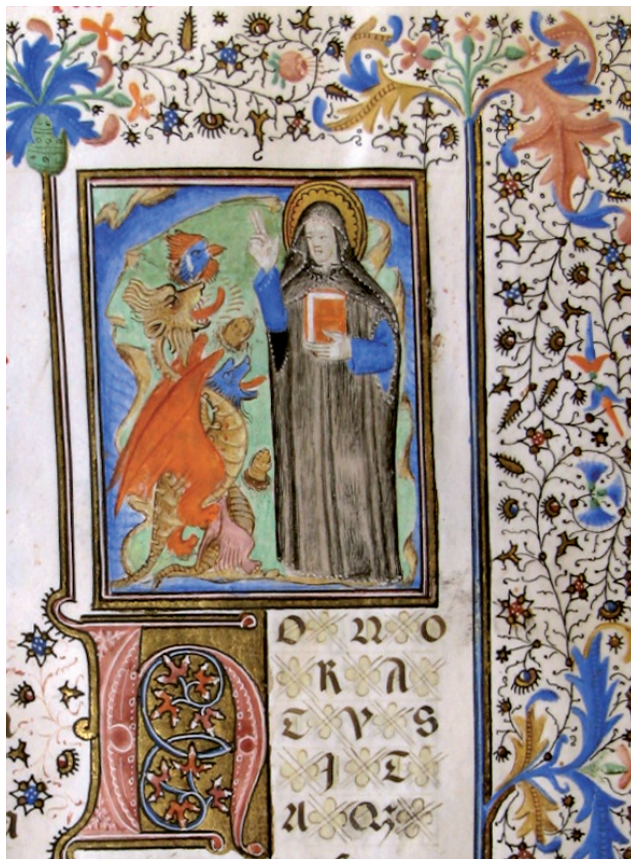 HONO
RA
TVS
IT
AQꝫ